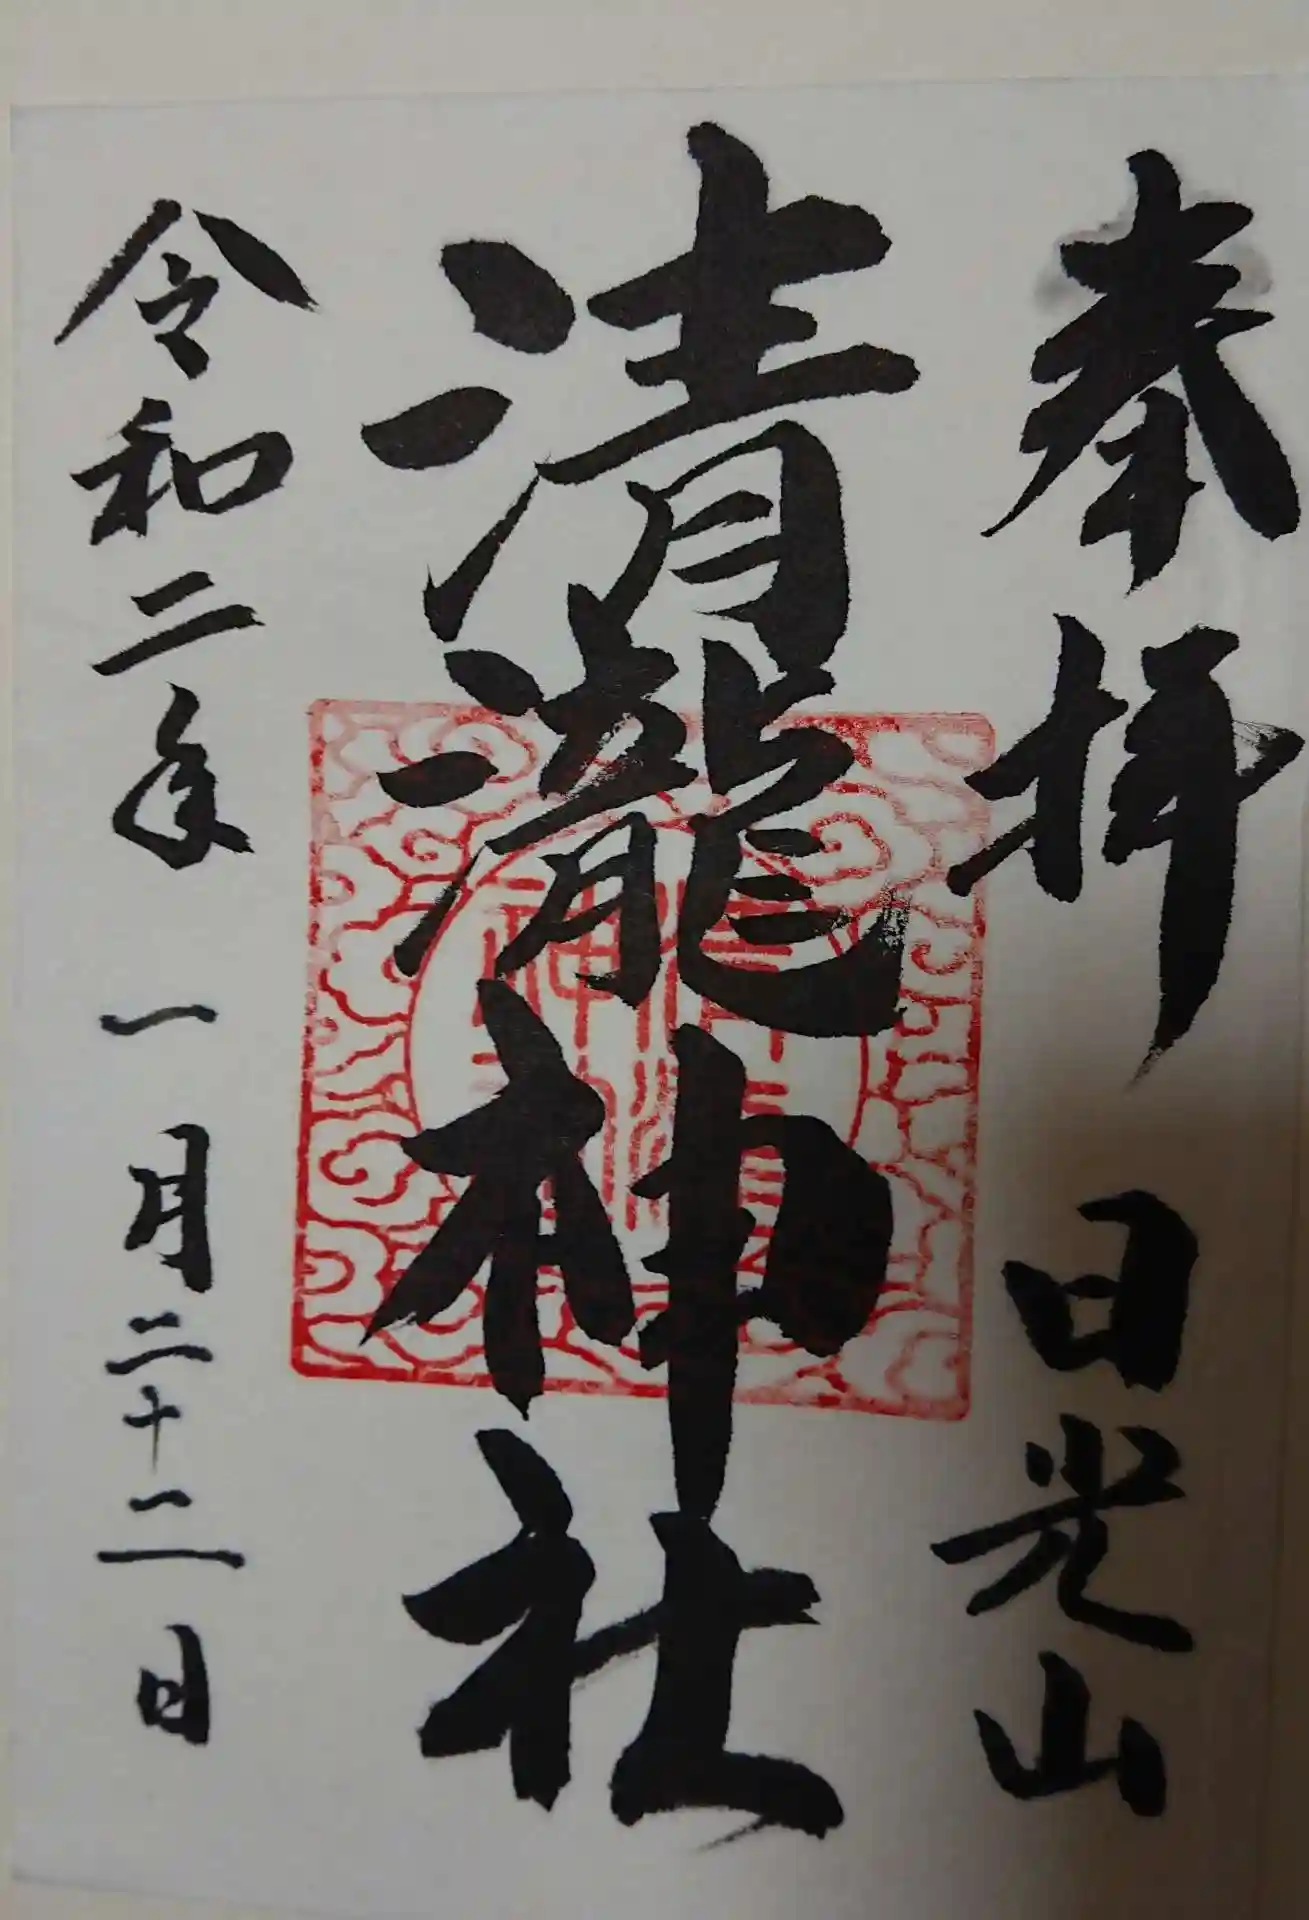 奉拝 日光山
清瀧神社
令和二年 一月二十二日